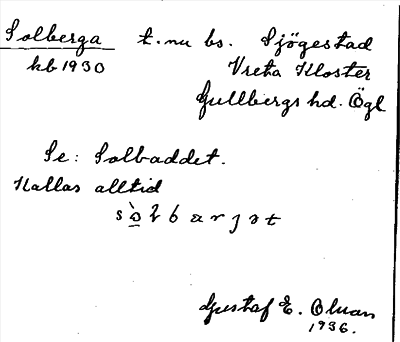 Solberga t. nu bs. Sjögestad
kb 1930 Vreta Kloster
Gullbergs hd. Ögl
Se: Solbaddet.
Kallas alltid
Gustaf E. Oluan
1936.